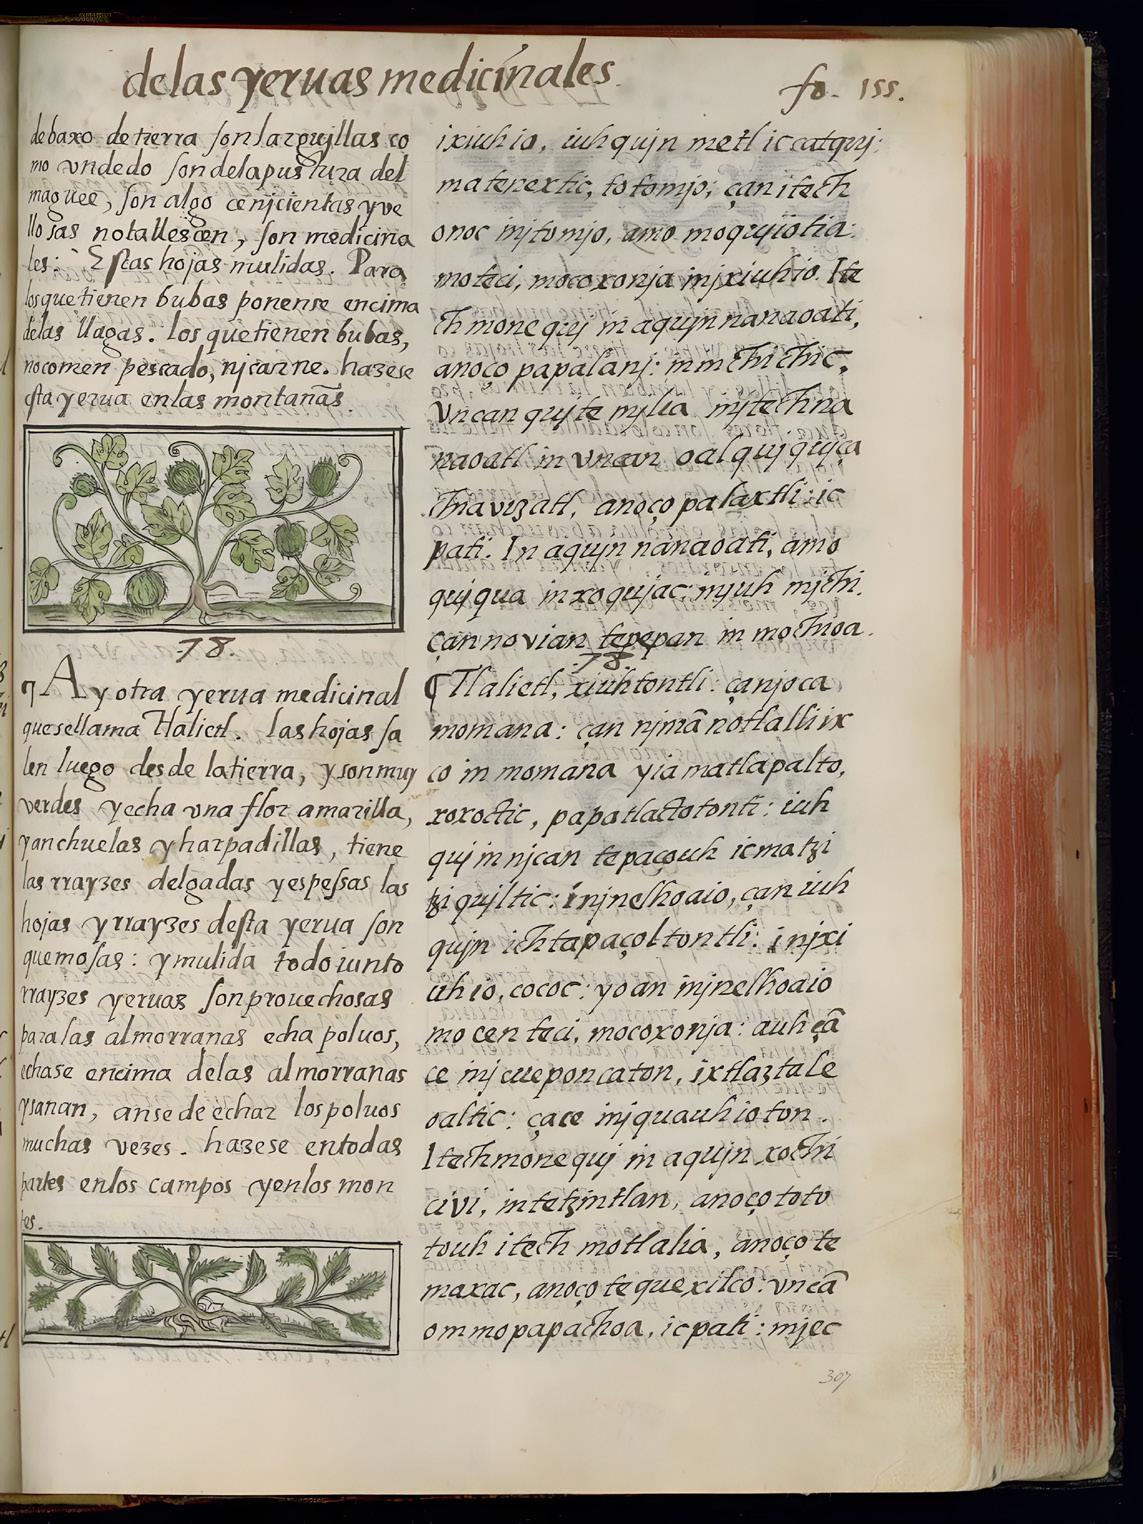 de las yeruas medicinales.
fo. 155.
debaxo de tierra son larguillas co
mo vn dedo son de la pustura del
maguee, son algo cenjcientas y ve
llosas no tallescen, son medicina
les: Estas hojas mulidas. Para
los que tienen bubas ponense encima
de las llagas. los que tienen bubas,
no comen pescado, nj carne. hazese
esta yerua en las montañas.
78.
¶ Ay otra yerua medicinal
que se llama Tlalietl. las hojas sa
len luego desde la tierra, y son muy
verdes y echa vna flor amarilla,
yanchuelas y harpadillas, tiene
las rrayzes delgadas y espessas las
hojas y rrayzes desta yerua son
quemosas: y mulida todo iunto
rrayzes yeruas son prouechosas
para las almorranas echa poluos,
echase encima de las almorranas
y sanan, anse de echar los poluos
muchas vezes. hazese en todas
partes en los campos y en los mon
tes.
ixiuhio, iuhqujn metl ic catquj:
matenextic, totomjo; çan itech
onoc injtomjo, amo moqujiotia:
moteci, mocoxonja injxiuhio. Ite
ch monequj in aqujn nanaoati,
anoço papalanj: in mchichic,
vncan qujtemjlia injtech na
naoatl in vncan oalqujqujça
chiavizatl, anoço palaxtli: ic
pati. In aqujn nanaoati, amo
qujqua in xoqujac: njuh mjchi.
Çan novian tepepan in mochioa.
78
¶ Tlalietl, xiuhtontli: çanjoca
momana: çan njmā no tlalli ix
co in momana yiamatlapalto,
xoxoctic, papatlactotonti: iuh
qujn njcan tepaçouh icmatzi
tziqujltic: injnelhoaio, çan iuh
qujn ichtapaçoltontli: injxi
uhio, cococ: yoan injnelhoaio
mocenteci, mocoxonja: auh çā
ce injcueponcaton, ixtlaztale
oaltic: çace injquauhioton.
Itech monequj in aqujn xochi
civi, in tetzintlan, anoço toto
touh itech motlalia, anoço te
maxac, anoço tequexilco: vncā
ommopapachoa, ic pati: mjec
307